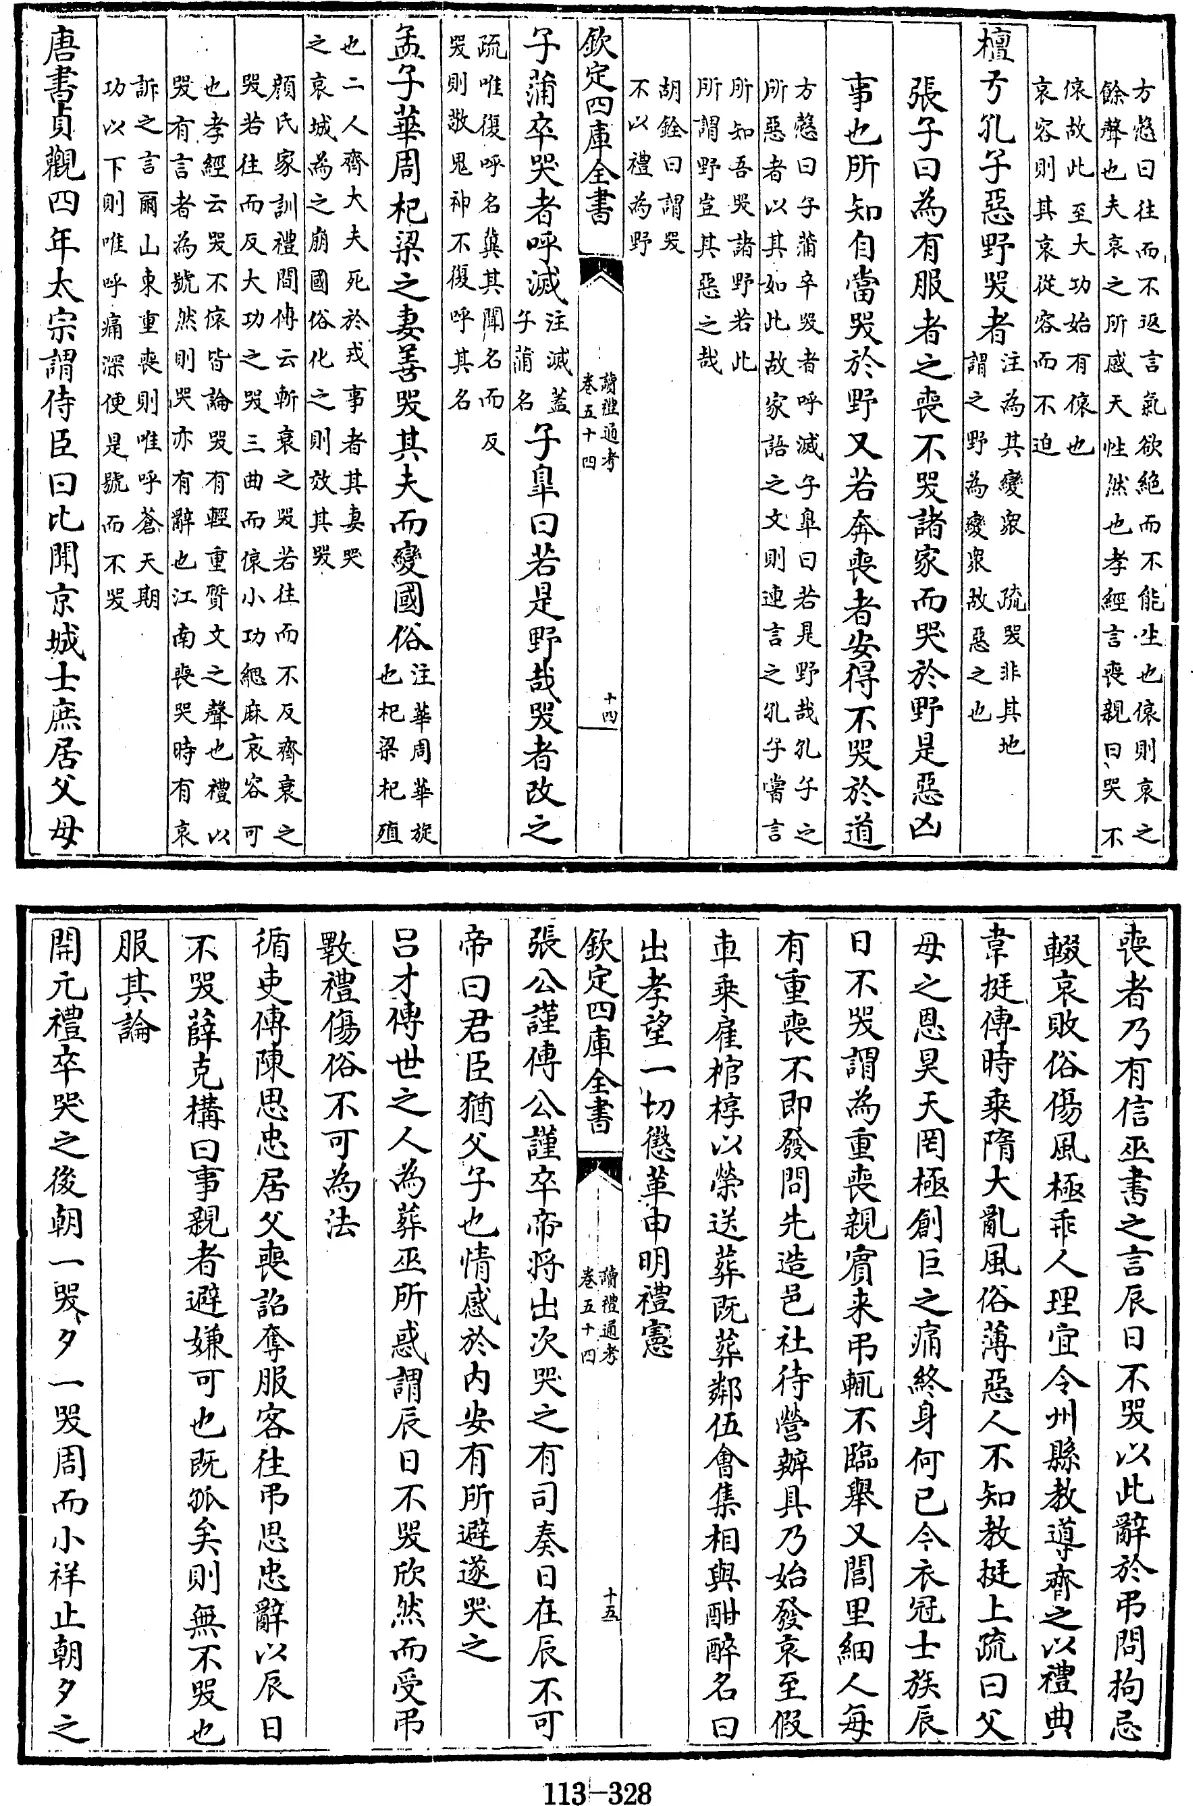 方慤曰往而不返言氣欲絶而不能生也偯則哀之
餘聲也夫哀之所感天性然也孝經言喪親曰哭不
偯故此至大功始有偯也
哀容則其哀從容而不迫
檀弓孔子惡野哭者注為其變衆 疏哭非其地
謂之野為變衆故惡之也
張子曰為有服者之喪不哭諸家而哭於野是惡凶
事也所知自當哭於野又若奔喪者安得不哭於道
方慤曰子蒲卒哭者呼滅子臯曰若是野哉孔子之
所惡者以其如此故家語之文則連言之孔子嘗言
所知吾哭諸野若此
所謂野豈其惡之哉
胡銓曰謂哭
不以禮為野
欽定四庫全書
讀禮通考
卷五十四
十四
子蒲卒哭者呼滅注滅蓋
子蒲名
子臯曰若是野哉哭者改之
疏唯復呼名冀其聞名而反
哭則敬鬼神不復呼其名
孟子華周杞梁之妻善哭其夫而變國俗注華周華旋
也杞梁杞殖
也二人齊大夫死於戎事者其妻哭
之哀城為之崩國俗化之則效其哭
顔氏家訓禮間傳云斬衰之哭若往而不反齊衰之
哭若往而反大功之哭三曲而偯小功緦麻哀容可
也孝經云哭不偯皆論哭有輕重質文之聲也禮以
哭有言者為號然則哭亦有辭也江南喪哭時有哀
訴之言爾山東重喪則唯呼蒼天期
功以下則唯呼痛深便是號而不哭
唐書貞觀四年太宗謂侍臣曰比聞京城士庶居父母
喪者乃有信巫書之言辰日不哭以此辭於弔問拘忌
輟哀敗俗傷風極乖人理宜令州縣教導齊之以禮典
韋挺傳時乘隋大亂風俗薄惡人不知教挺上疏曰父
母之恩昊天罔極創巨之痛終身何已今衣冠士族辰
日不哭謂為重喪親賓来弔輒不臨舉又閭里細人每
有重喪不即發問先造邑社待營辦具乃始發哀至假
車乗雇棺椁以榮送葬既葬鄰伍會集相與酣醉名曰
出孝望一切懲革申明禮憲
欽定四庫全書
讀禮通考
卷五十四
十五
張公謹傳公謹卒帝將出次哭之有司奏日在辰不可
帝曰君臣猶父子也情感於内安有所避遂哭之
吕才傳世之人為葬巫所惑謂辰日不哭欣然而受弔
斁禮傷俗不可為法
循吏傳陳思忠居父喪詔奪服客往弔思忠辭以辰日
不哭薛克構曰事親者避嫌可也既孤矣則無不哭也
服其論
開元禮卒哭之後朝一哭夕一哭周而小祥止朝夕之
113-328